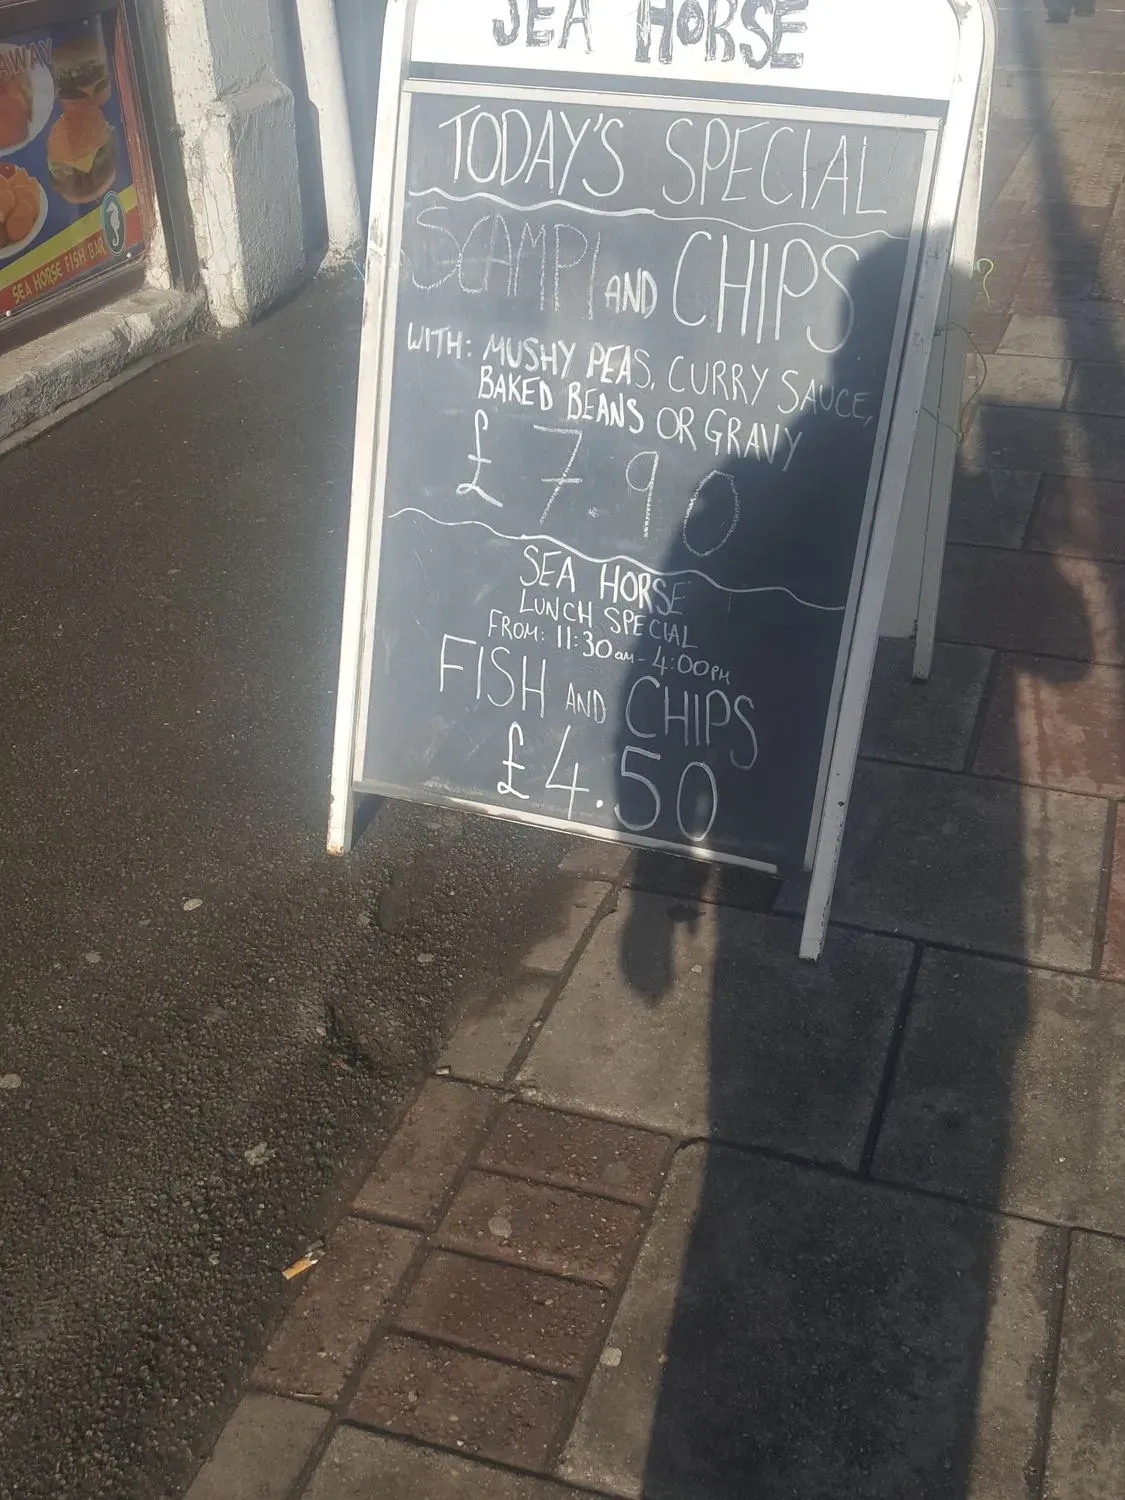 SEA HORSE
TODAY'S SPECIAL
SCAMPI AND CHIPS
WITH: MUSHY PEAS, CURRY SAUCE,
BAKED BEANS OR GRAVY
£7.90
SEA HORSE
LUNCH SPECIAL
FROM: 11:30am - 4:00PM
FISH AND CHIPS
£4.50
AWAY
SEA HORSE FISH BAR